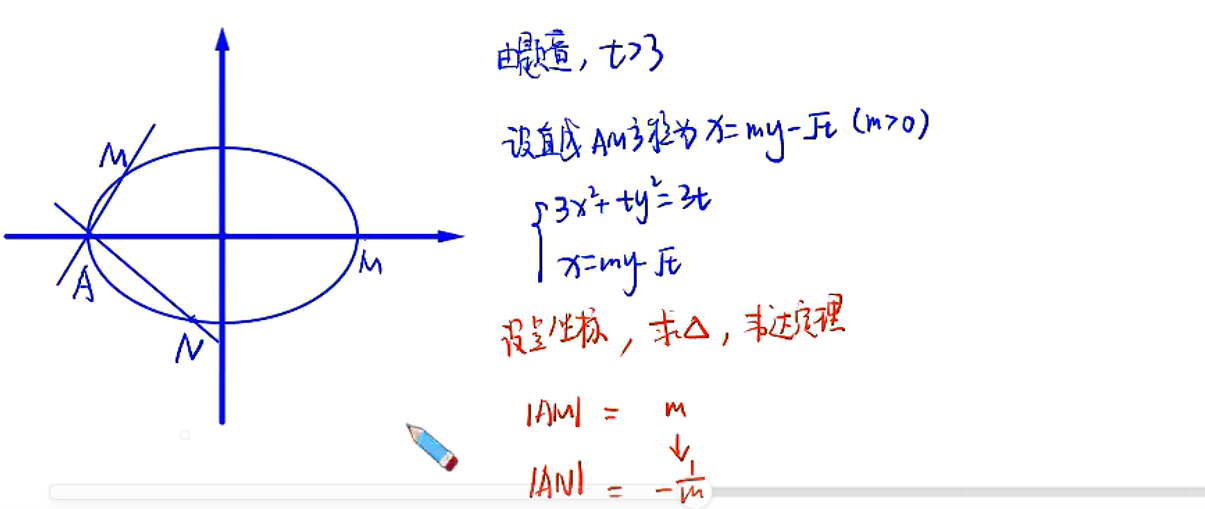 M
A
N
M
由题意, t>3
设直线AM方程为 x=my-√t (m>0)
3x²+ty²=3t
x=my-√t
设坐标, 求△, 韦达定理
|AM| = m
↓
|AN| = -1/m